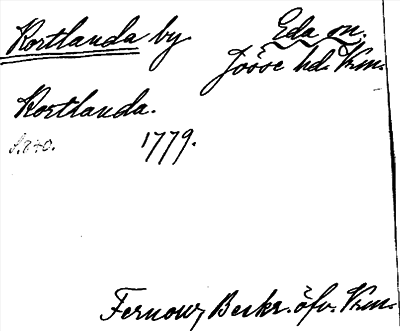 Kortlanda by Eda sn.
Jösse hd. Vrm.
Kortlanda.
S. 240. 1779.
Fernow, Beskr. öfv. Vrm.